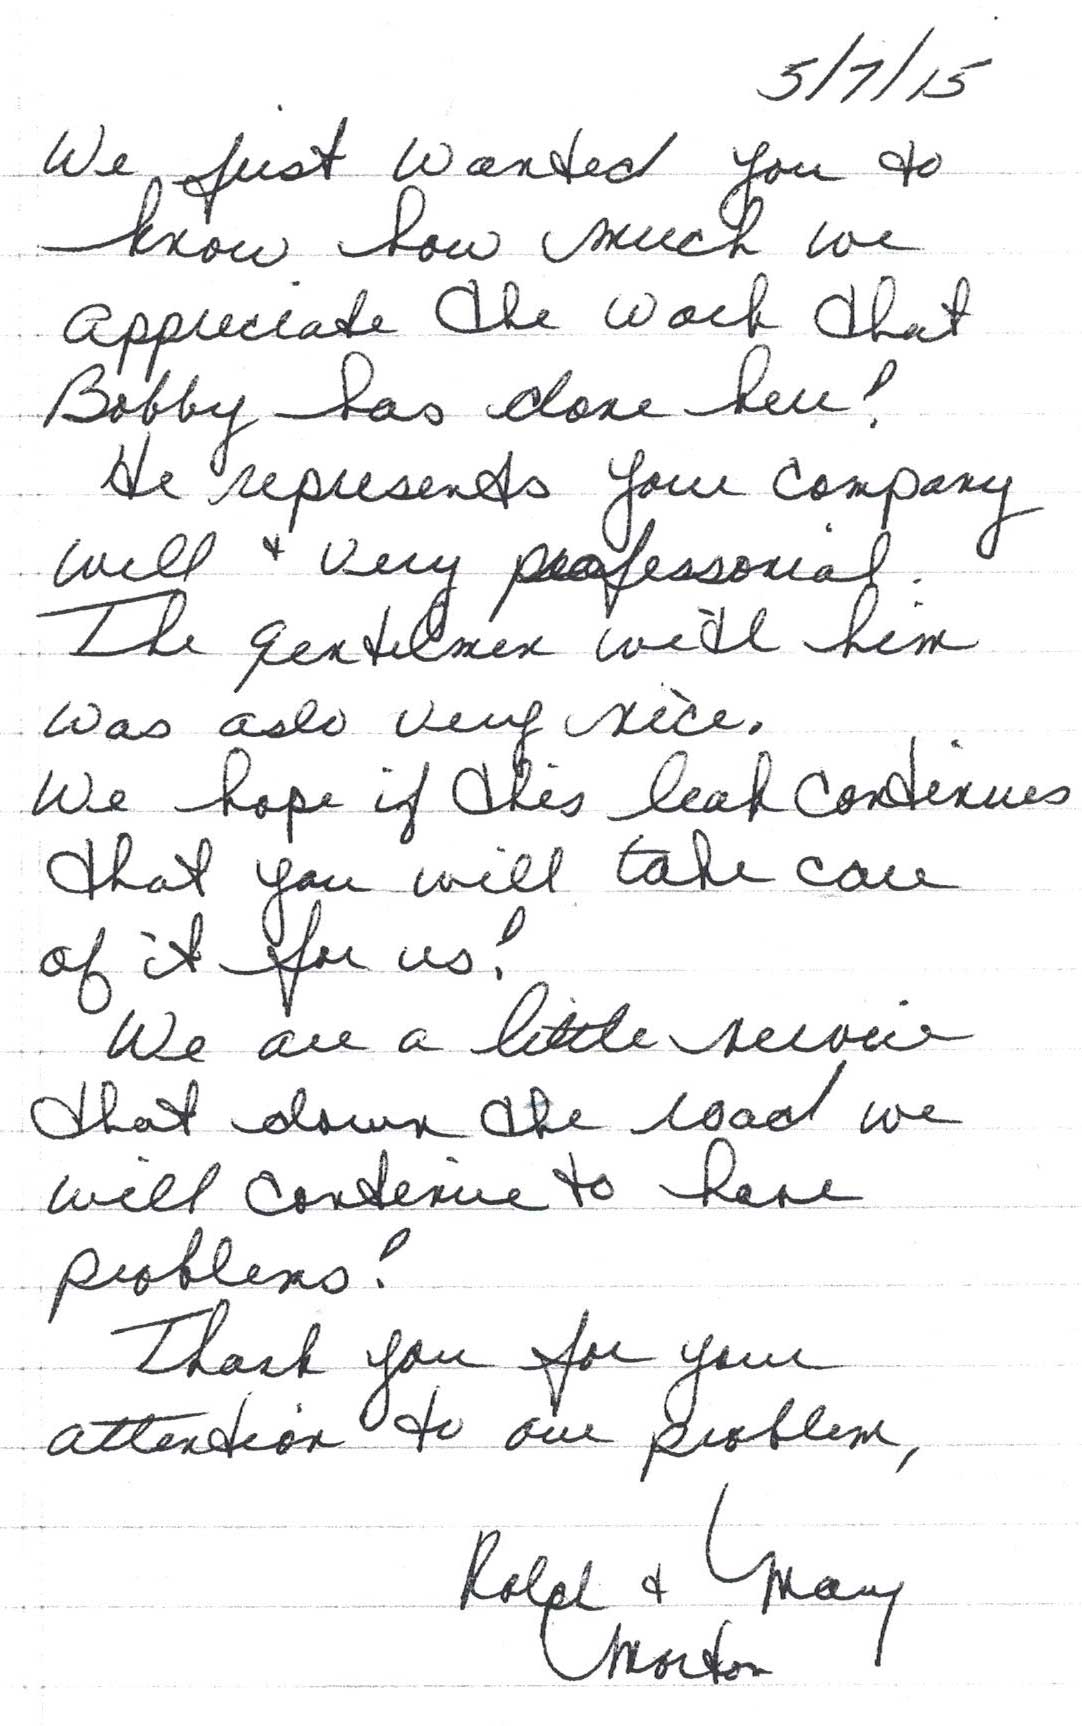 5/7/15
We just wanted you to
know how much we
appreciate the work that
Bobby has done here!
He represents your company
well & very professonial.
The gentelmen with him
was aslo very nice.
We hope if this leak continues
that you will take care
of it for us!
We are a little nervoie
that down the road we
will continue to have
problems!
Thank you for your
attention to our problem,
Ralph & Mary
Morton